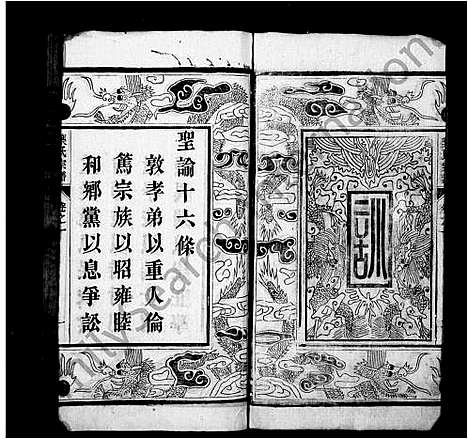 訓
聖諭十六條
敦孝弟以重人倫
篤宗族以昭雍睦
和鄉黨以息爭訟